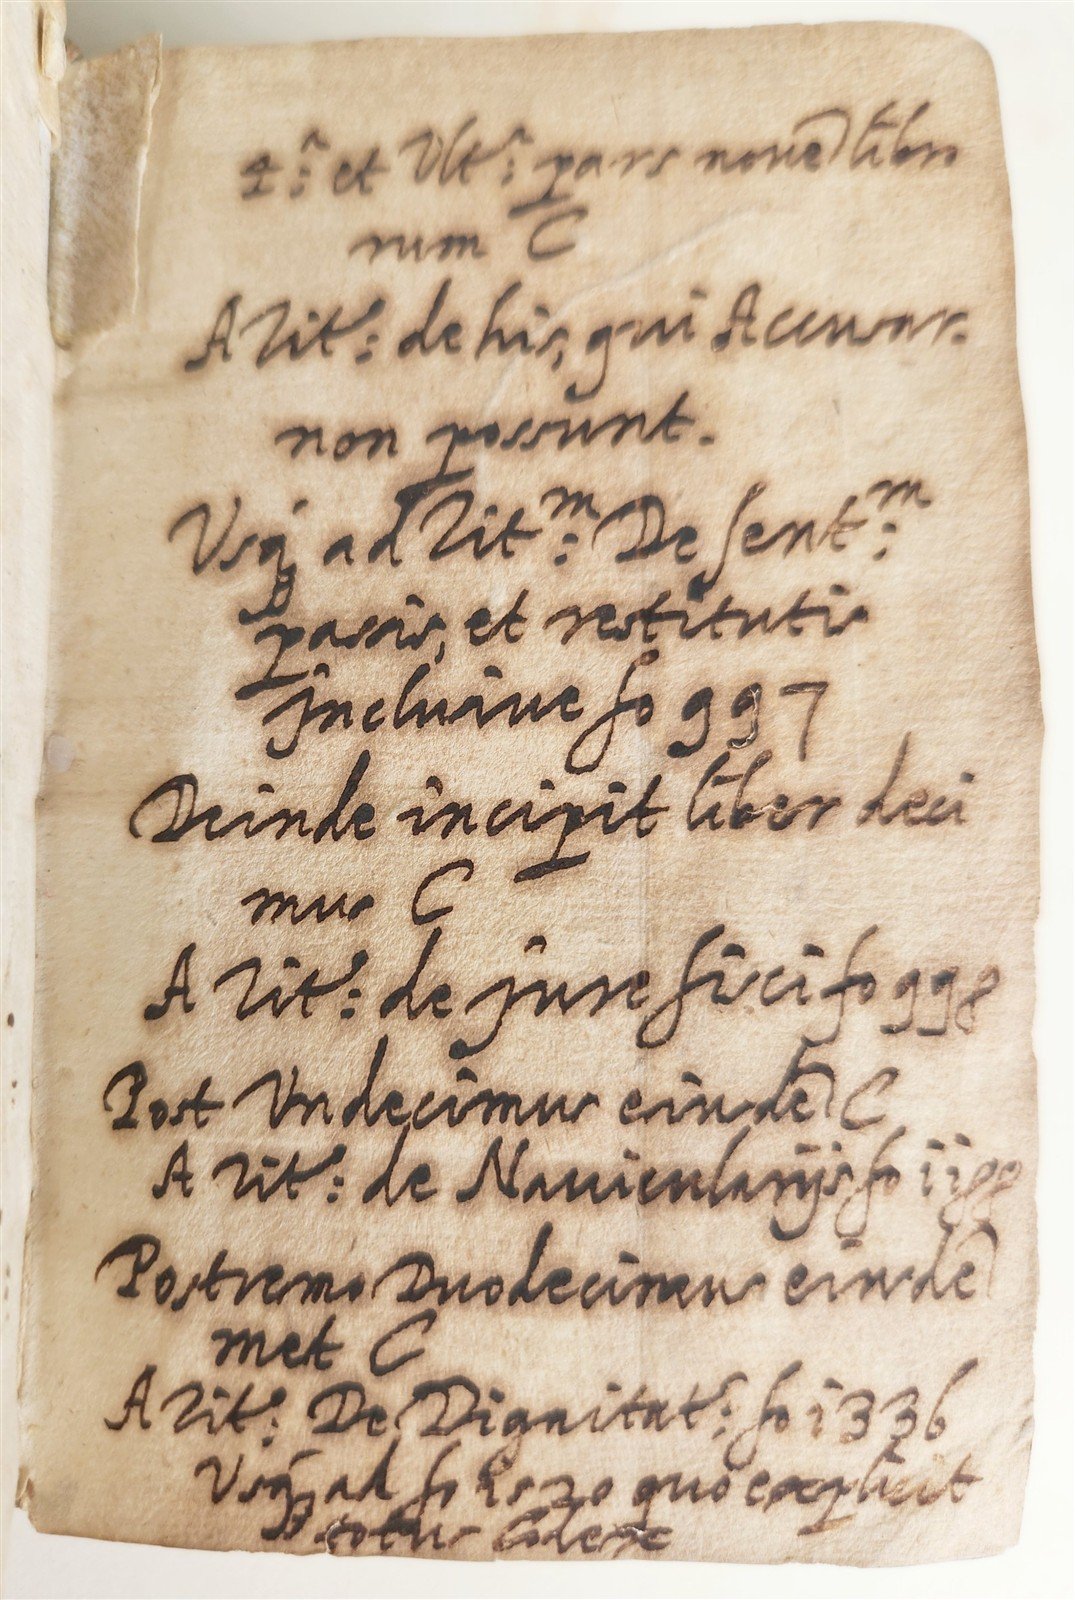 4.ª et Ult.ª pars noue libro
rum C
A Tit.º: de his, qui Accusar.
non possunt.
Usq ad Tit.m De sent.m
passis, et restitutis
jnclusiue fo 997
Deinde incipit liber deci
mus C
A Tit.º: de jure fisci fo 998
Post Undecimus eiusdē C
A Tit.º: de Nauicularijs fo 1188
Postremo Duodecimus eiusdē
met C
A Tit.º: De Dignitat.s: fo 1336
Usq ad fo quo explicit
totus Codex